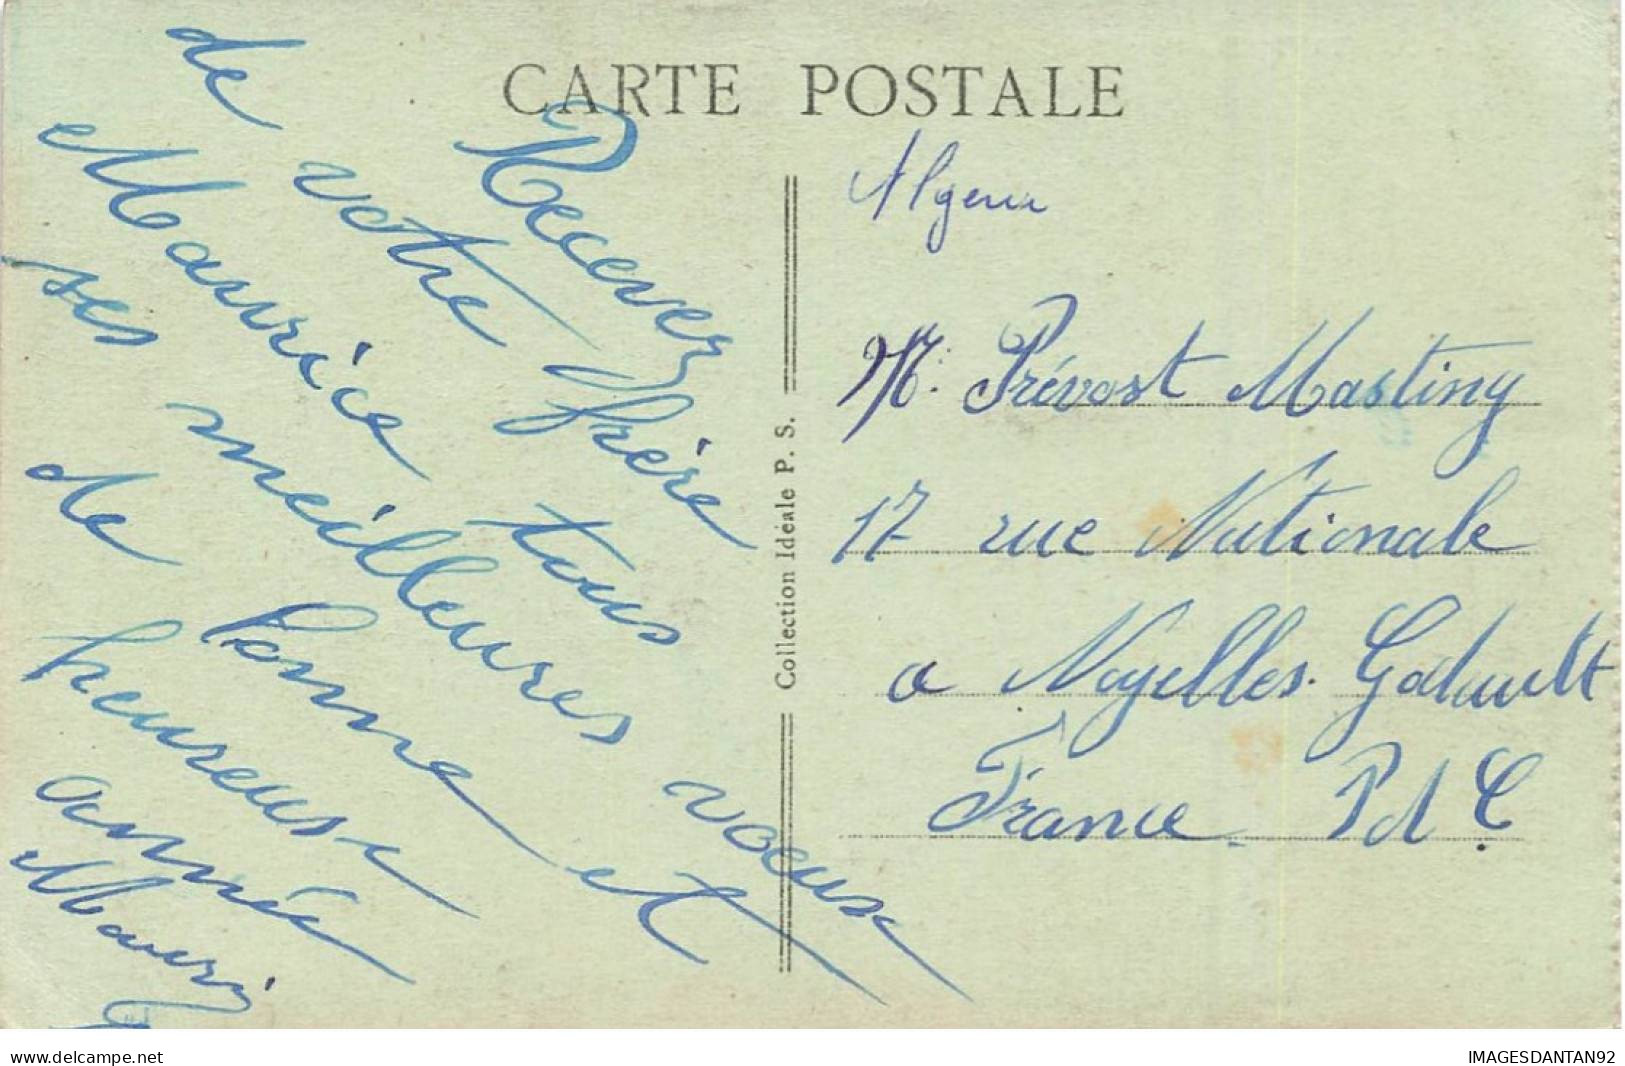 CARTE POSTALE
Recevez
de votre frère
Maurice tous
ses meilleures voeux
de bonne et
heureuse
année
Maurice
Collection Idéale P. S.
M. Prévost Mastiny
17 rue Nationale
a Noyelles. Godault
France P d C.
www.delcampe.net
IMAGESDANTAN92